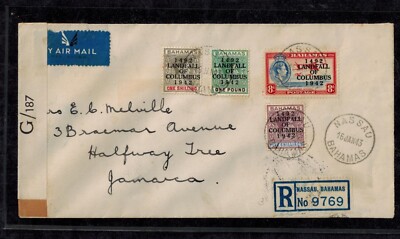 BY AIR MAIL
BAHAMAS
1492
LANDFALL
OF
COLUMBUS
1942
ONE SHILLING
BAHAMAS
1492
LANDFALL
OF
COLUMBUS
1942
ONE POUND
BAHAMAS
1492
LANDFALL
OF
COLUMBUS
1942
8d
8d
BAHAMAS
1492
LANDFALL
OF
COLUMBUS
1942
NASSAU
BAHAMAS
G/187
rs E. C. Melville
3 Braemar Avenue
Halfway Tree
Jamaica.
R
NASSAU, BAHAMAS
No 9769